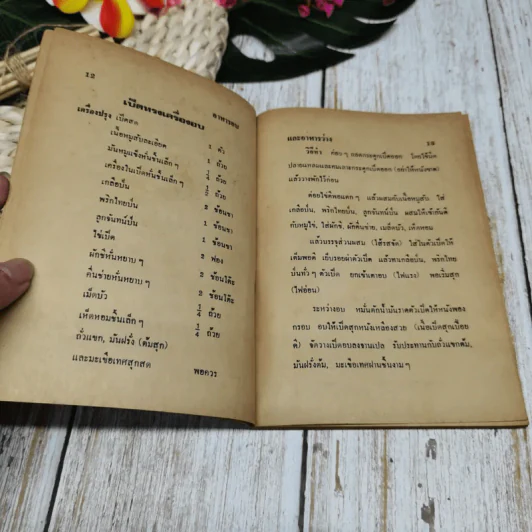 12
อาหารอบ
เป็ดทรงเครื่องอบ
เครื่องปรุง เป็ดสด 1 ตัว
เนื้อหมูสับละเอียด 1 ถ้วย
มันหมูแข็งหั่นชิ้นเล็กๆ ¼ ถ้วย
เครื่องในเป็ดหั่นชิ้นเล็กๆ ½ ถ้วย
เกลือป่น 2 ช้อนชา
พริกไทยป่น 1 ช้อนชา
ลูกจันทน์ป่น 1 ช้อนชา
ไข่เป็ด 2 ฟอง
ผักชีหั่นหยาบๆ 2 ช้อนโต๊ะ
คึ่นช่ายหั่นหยาบๆ 2 ช้อนโต๊ะ
เม็ดบัว ¼ ถ้วย
เห็ดหอมชิ้นเล็กๆ ¼ ถ้วย
ถั่วแขก, มันฝรั่ง (ต้มสุก)
และมะเขือเทศสุกสด พอควร
และอาหารว่าง
วิธีทำ ค่อยๆ ถอดกระดูกเป็ดออก โดยใช้มีด
แล้ววางพักไว้ก่อน
ต่อยไข่ตีพอแตกๆ แล้วผสมกับเนื้อหมูสับ ใส่
เกลือป่น, พริกไทยป่น, ลูกจันทน์ป่น ผสมให้เข้ากันดี
กับหมูไข่, ใส่ผักชี, ผักคึ่นช่าย, เมล็ดบัว, เห็ดหอม
แล้วบรรจุส่วนผสม (ไส้รสจัด) ใส่ในตัวเป็ดให้
เต็มพอดี เย็บรอยผ่าตัวเป็ด แล้วทาเกลือป่น, พริกไทย
ป่นทั่วๆ ตัวเป็ด ยกเข้าเตาอบ (ไฟแรง) พอเริ่มสุก
(ไฟอ่อน)
ระหว่างอบ หมั่นตักน้ำมันราดตัวเป็ดให้หนังพอง
กรอบ อบให้เป็ดสุกหนังเหลืองสวย (เนื้อเป็ดสุกเปื่อย
ดี) จัดวางเป็ดอบลงชานเปล รับประทานกับถั่วแขกต้ม,
มันฝรั่งต้ม, มะเขือเทศฝานชิ้นงามๆ